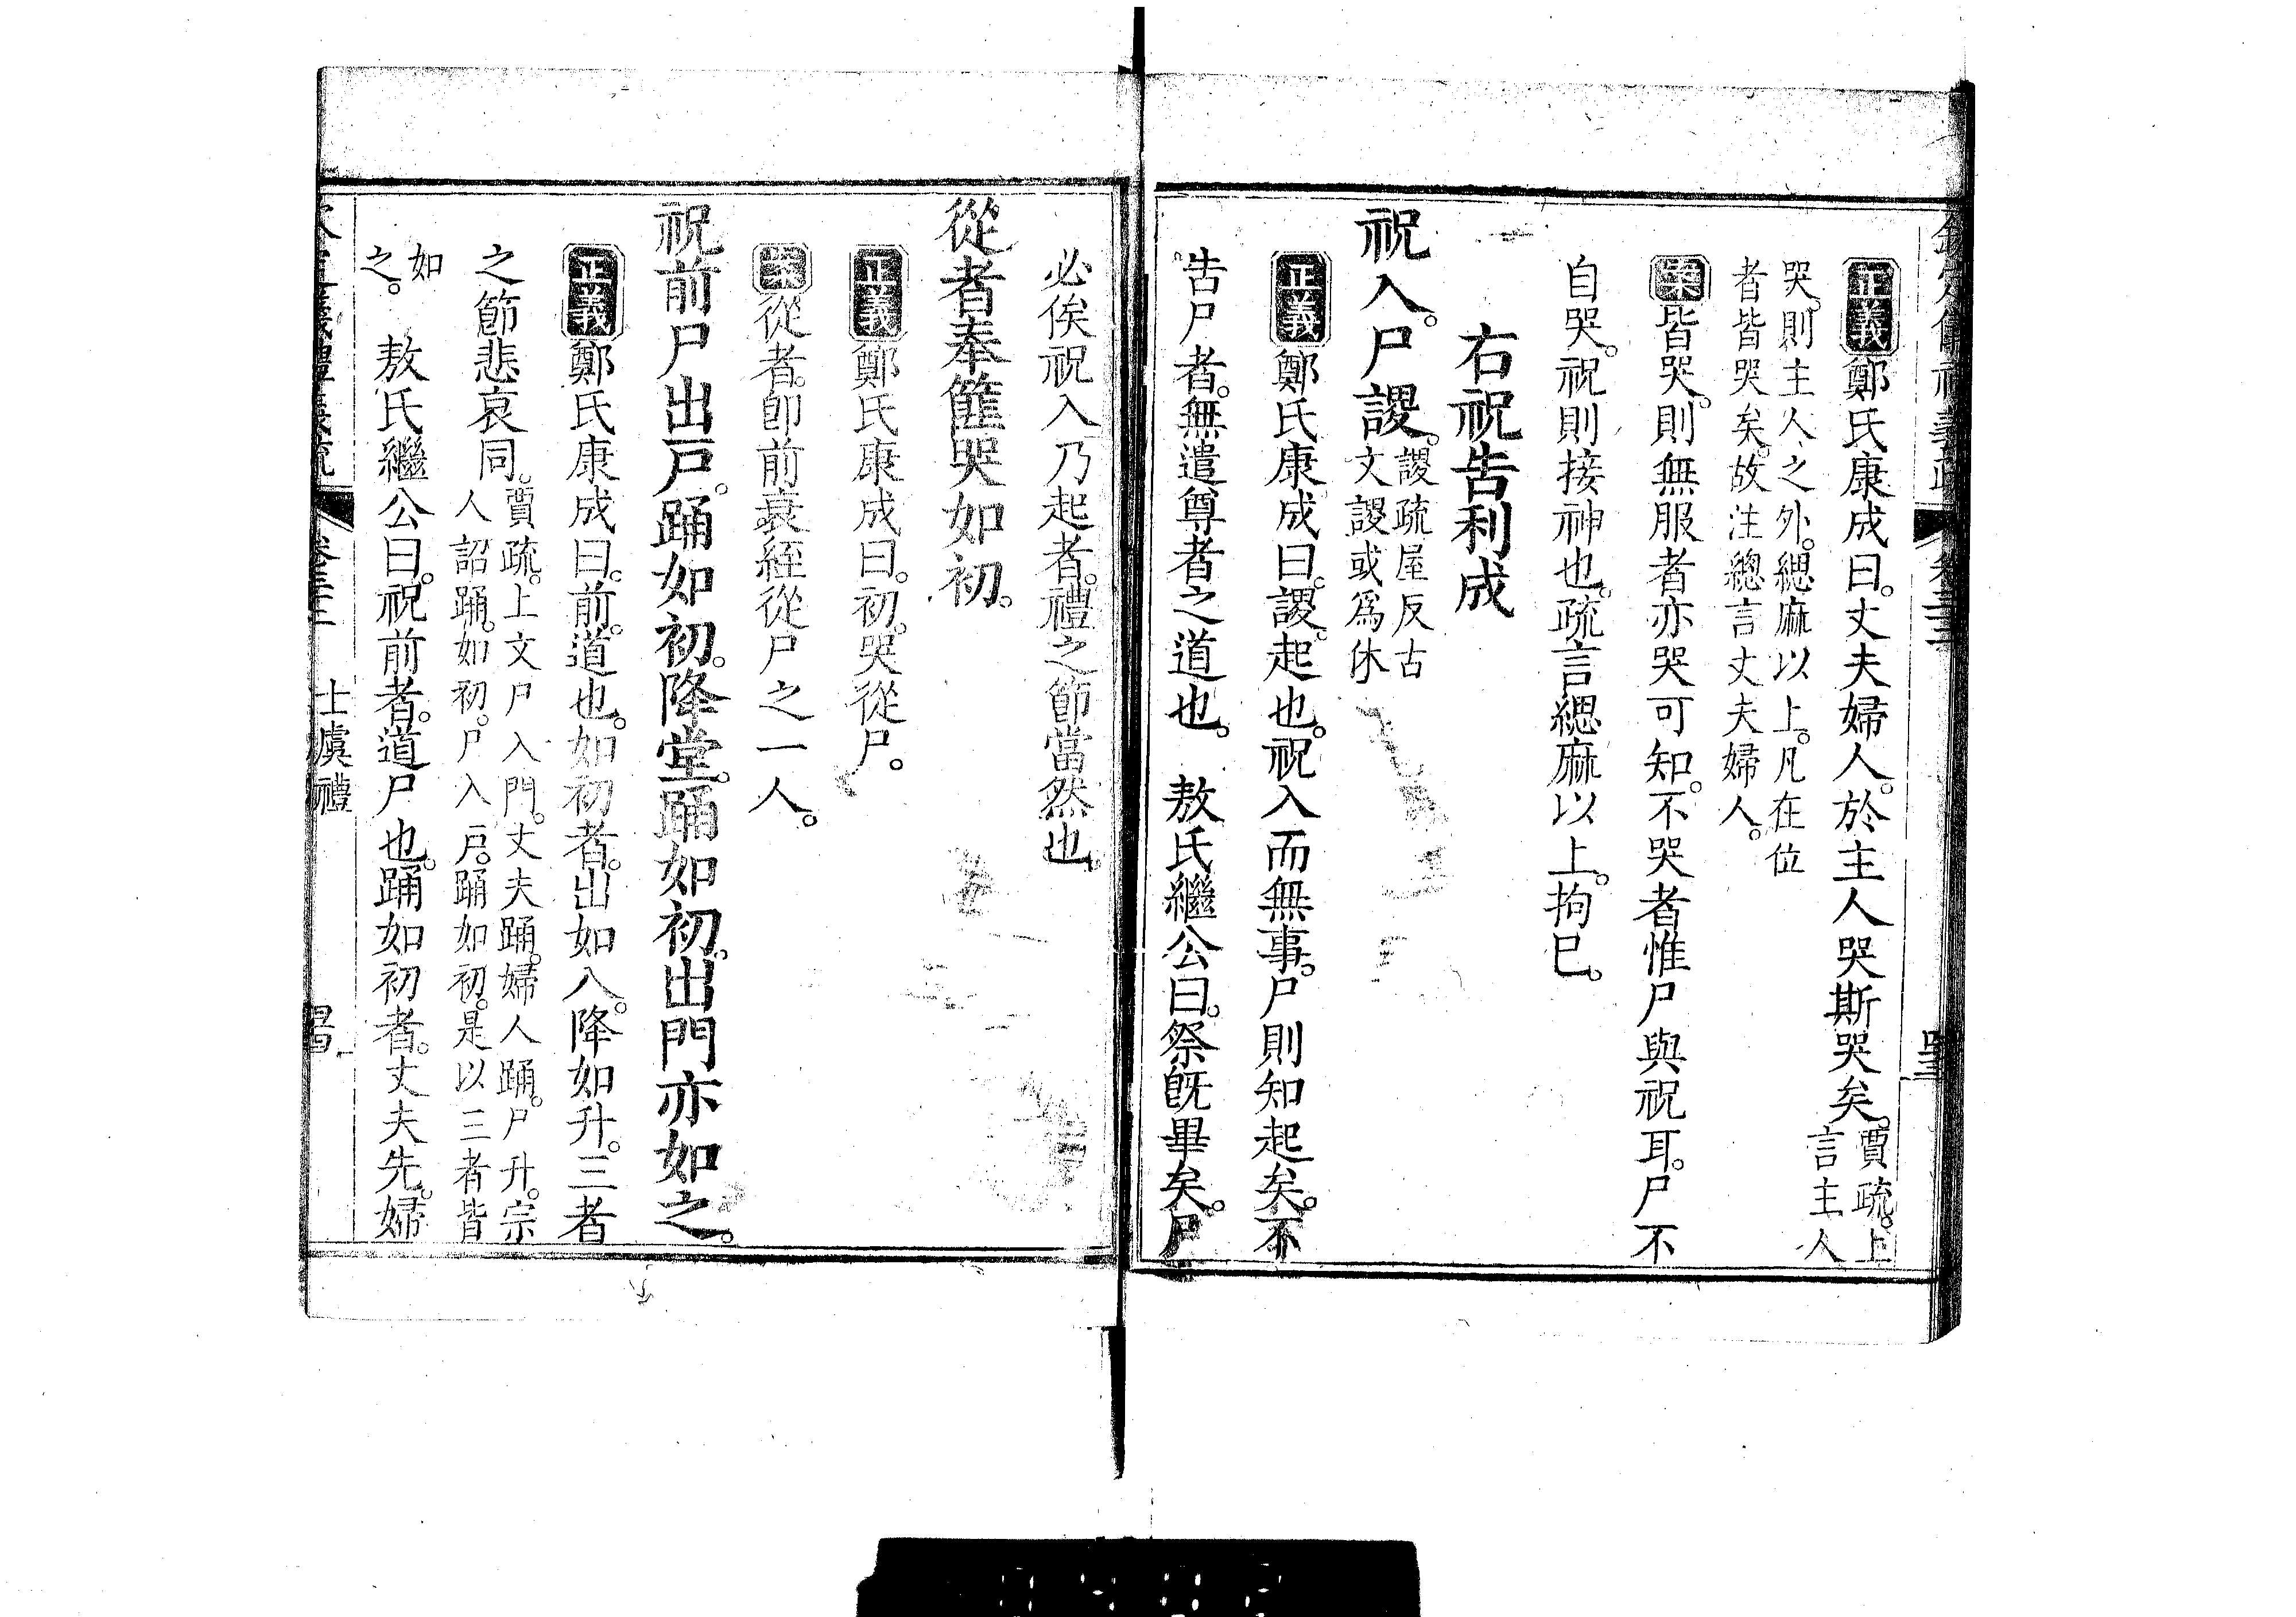 正義鄭氏康成曰。丈夫婦人。於主人哭斯哭矣。賈疏。上言主人
哭。則主人之外。緦麻以上。凡在位者皆哭矣。故注總言丈夫婦人。
案皆哭。則無服者亦哭可知。不哭者惟尸與祝耳。尸不
自哭。祝則接神也。疏言緦麻以上。拘已。
右祝告利成
祝入。尸謖。謖疏屋反古文謖或爲休
正義鄭氏康成曰。謖。起也。祝入而無事。尸則知起矣。不
告尸者。無遣尊者之道也。 敖氏繼公曰。祭旣畢矣。尸
必俟祝入乃起者。禮之節當然也。
從者奉篚哭如初。
正義鄭氏康成曰。初。哭從尸。
案從者。卽前衰絰從尸之一人。
祝前尸出戸。踊如初。降堂。踊如初。出門亦如之。
正義鄭氏康成曰。前。道也。如初者。出如入。降如升。三者
之節悲哀同。賈疏。上文尸入門。丈夫踊。婦人踊。尸升。宗人詔踊。如初。尸入戸。踊如初。是以三者皆
如之。 敖氏繼公曰。祝前者。道尸也。踊如初者。丈夫先。婦
士虞禮